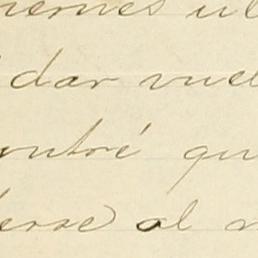 viernes ul
dar vuel
ontré qu
erse al